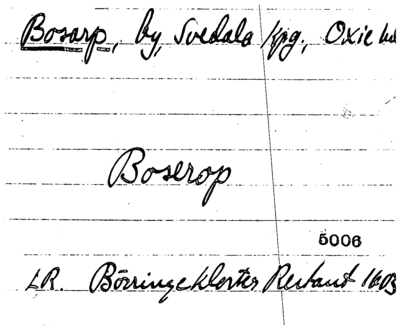 Bosarp, by, Svedala kpg., Oxie hd
Boserop
5006
LR. Börringeklosters Restant 1603